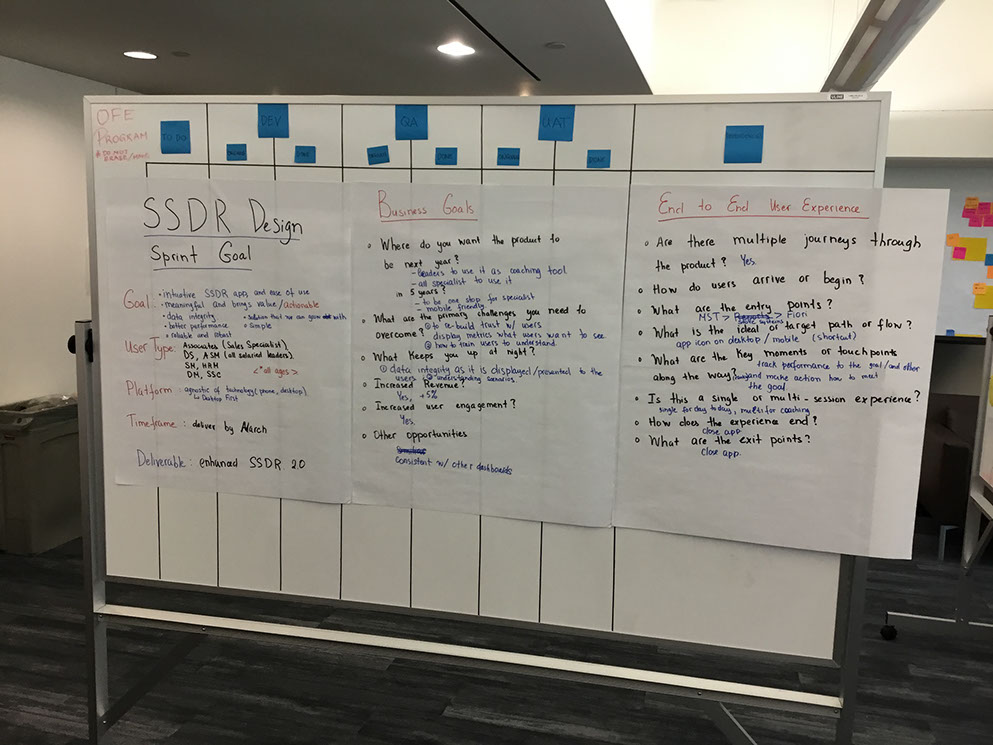 OFE
PROGRAM
* DO NOT
ERASE/MOVE
TO DO
DEV
QA
UAT
DONE
DONE
DONE
SSDR Design
Sprint Goal
Goal: • intuitive SSDR app, and ease of use
• meaningful and brings value /actionable
• data integrity • solution that we can grow with
• better performance • simple
• reliable and robust
User Type: Associates (Sales Specialist)
DS, ASM (all salaried leaders)
SM, HRM <*all ages>
DM, SSC
Platform: agnostic of technology (phone, desktop)
↳ Desktop First
Timeframe: deliver by March
Deliverable: enhanced SSDR 2.0
Business Goals
Where do you want the product to
be next year?
- leaders to use it as coaching tool
- all specialist to use it
in 5 years?
- to be one stop for specialist
- mobile friendly
What are the primary challenges you need to
overcome? ① to re-build trust w/ users
② display metrics what users want to see
③ how to train users to understand.
What Keeps you up at night?
① data integrity as it is displayed/presented to the
users ② understanding scenarios.
Increased Revenue?
Yes, +5%
Increased user engagement?
Yes.
Other opportunities
Consistent w/ other dashboards
End to End User Experience
Are there multiple journeys through
the product? Yes.
How do users arrive or begin?
What are the entry points?
MST > Reports > Fiori
State systems
What is the ideal or target path or flow?
app icon on desktop / mobile (shortcut)
What are the key moments or touchpoints
along the way? track performance to the goal/and other
and make action how to meet
the goal
Is this a single or multi-session experience?
single for day to day, multi for coaching
How does the experience end?
close app.
What are the exit points?
close app.